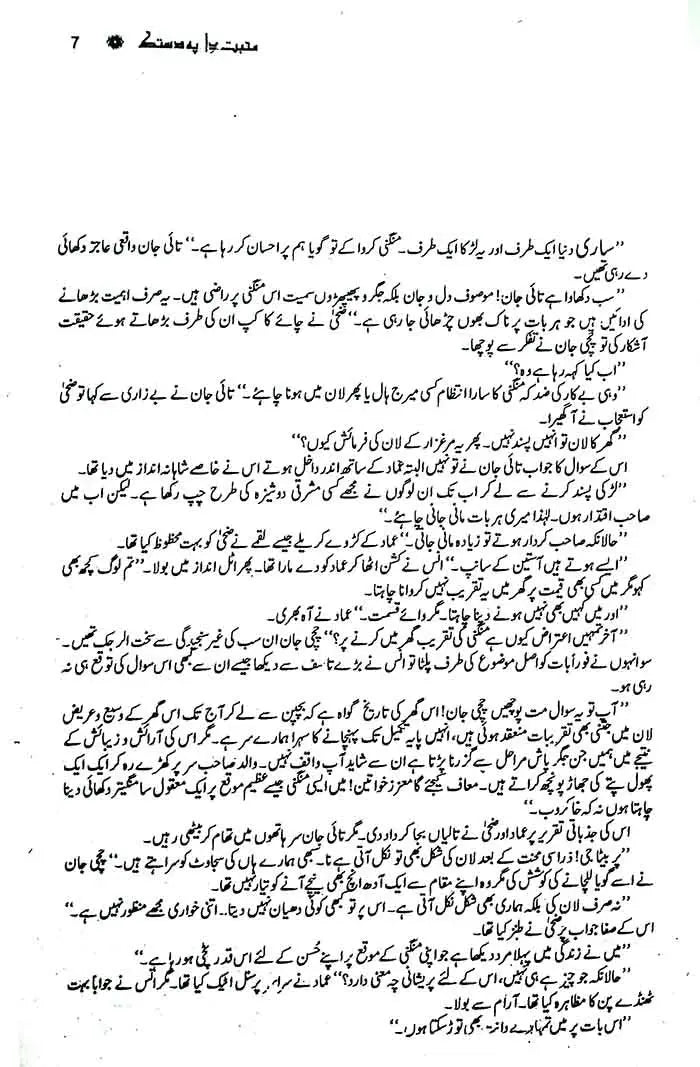 محبت دل پہ دستک 7
’’ساری دنیا ایک طرف اور یہ لڑکا ایک طرف۔ منگنی کروا کے تو گویا ہم پر احسان کر رہا ہے۔‘‘ تائی جان واقعی عاجز دکھائی
دے رہی تھیں۔
’’سب دکھاوا ہے تائی جان! موصوف دل و جان بلکہ جگر و پھیپھڑوں سمیت اس منگنی پر راضی ہیں۔ یہ صرف اہمیت بڑھانے
کی ادائیں ہیں جو ہر بات پر ناک بھوں چڑھائی جا رہی ہے۔‘‘ ضحیٰ نے چائے کا کپ ان کی طرف بڑھاتے ہوئے حقیقت
آشکار کی تو چچی جان نے تفکر سے پوچھا۔
’’اب کیا کہہ رہا ہے وہ؟‘‘
’’وہی بے کار کی ضد کہ منگنی کا سارا انتظام کسی میرج ہال یا پھر لان میں ہونا چاہئے۔‘‘ تائی جان نے بے زاری سے کہا تو ضحیٰ
کو استعجاب نے آ گھیرا۔
’’گھر کا لان تو انہیں پسند نہیں۔ پھر یہ مرغزار کے لان کی فرمائش کیوں؟‘‘
اس کے سوال کا جواب تائی جان نے تو نہیں البتہ عماد کے ساتھ اندر داخل ہوتے انس نے خاصے شاہانہ انداز میں دیا تھا۔
’’لڑکی پسند کرنے سے لے کر اب تک ان لوگوں نے مجھے کسی مشرقی دوشیزہ کی طرح چپ رکھا ہے۔ لیکن اب میں
صاحب اقتدار ہوں۔ لہٰذا میری ہر بات مانی جانی چاہئے۔‘‘
’’حالانکہ صاحب کردار ہوتے تو زیادہ مانی جاتی۔‘‘ عماد کے کڑوے کریلے جیسے لقمے نے ضحیٰ کو بہت محظوظ کیا تھا۔
’’ایسے ہوتے ہیں آستین کے سانپ۔‘‘ انس نے کشن اٹھا کر عماد کو دے مارا تھا۔ پھر اٹل انداز میں بولا۔ ’’تم لوگ کچھ بھی
کہو مگر میں کسی بھی قیمت پر گھر میں یہ تقریب نہیں کروانا چاہتا۔
’’اور میں کہیں بھی نہیں ہونے دینا چاہتا۔ مگر وائے قسمت۔‘‘ عماد نے آہ بھری۔
’’آخر تمہیں اعتراض کیوں ہے منگنی کی تقریب گھر میں کرنے پر؟‘‘ چچی جان ان سب کی غیر سنجیدگی سے سخت الرجک تھیں۔
سو انہوں نے فوراً بات کو اصل موضوع کی طرف پلٹا تو انس نے بڑے تاسف سے دیکھا جیسے ان سے بھی اس سوال کی توقع ہی نہ
رہی ہو۔
’’آپ تو یہ سوال مت پوچھیں چچی جان! اس گھر کی تاریخ گواہ ہے کہ بچپن سے لے کر آج تک اس گھر کے وسیع و عریض
لان میں جتنی بھی تقریبات منعقد ہوئی ہیں، انہیں پایہ تکمیل تک پہنچانے کا سہرا ہمارے سر ہے۔ مگر اس کی آرائش و زیبائش کے
نتیجے میں ہمیں جن جگر پاش مراحل سے گزرنا پڑتا ہے ان سے شاید آپ واقف نہیں۔ والد صاحب سر پر کھڑے رہ کر ایک ایک
پھول پتے کی جھاڑ پونچھ کراتے ہیں۔ معاف کیجئے گا معزز خواتین! میں ایسی منگنی جیسے عظیم موقع پر ایک معقول سا منگیتر دکھائی دینا
چاہتا ہوں نہ کہ خاکروب۔‘‘
اس کی جذباتی تقریر پر عماد اور ضحیٰ نے تالیاں بجا کر داد دی۔ مگر تائی جان سر ہاتھوں میں تھام کر بیٹھی رہیں۔
’’پر بیٹا جی! ذرا سی محنت کے بعد لان کی شکل بھی تو نکل آتی ہے نا۔ سبھی ہمارے ہاں کی سجاوٹ کو سراہتے ہیں۔‘‘ چچی جان
نے اسے گویا للچانے کی کوشش کی مگر وہ اپنے مقام سے ایک آدھ انچ بھی نیچے آنے کو تیار نہیں تھا۔
’’نہ صرف لان کی بلکہ ہماری بھی شکل نکل آتی ہے۔ اس پر تو کبھی کوئی دھیان نہیں دیتا۔ اتنی خواری مجھے منظور نہیں ہے۔‘‘
اس کے صفا جواب پر ضحیٰ نے طنز کیا تھا۔
’’میں نے زندگی میں پہلا مرد دیکھا ہے جو اپنی منگنی کے موقع پر اپنے حُسن کے لئے اس قدر پٹی ہو رہا ہے۔‘‘
’’حالانکہ جو چیز ہے ہی نہیں، اس کے لئے پریشانی چہ معنی دارد؟‘‘ عماد نے سراسر پرسنل اٹیک کیا تھا۔ مگر انس نے جواباً بہت
ٹھنڈے پن کا مظاہرہ کیا تھا۔ آرام سے بولا۔
’’اس بات پر میں تمہارے دانت بھی توڑ سکتا ہوں۔‘‘